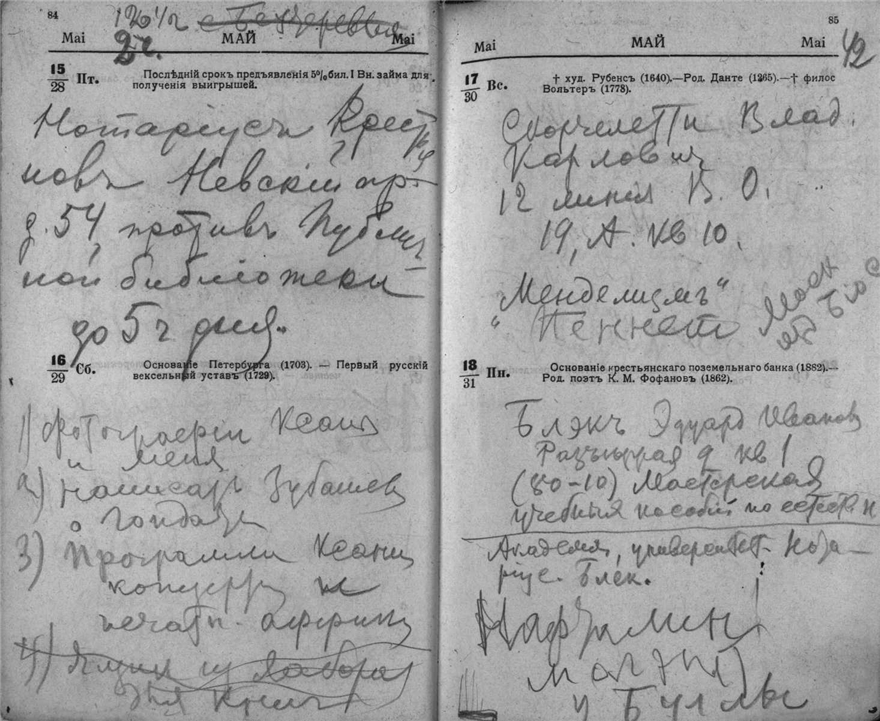 84
120 1/2
2 ч.
Mai МАЙ Mai
15/28 Пт. Послѣдній срокъ предъявленія 5% бил. I Вн. займа для
полученія выигрышей.
Нотаріусъ Крест
новъ Невскій пр
д. 54, противъ Публич
ной библіотеки
до 5 ч дня.
16/29 Сб. Основаніе Петербурга (1703). — Первый русскій
вексельный уставъ (1729).
1) Фотографіи Ксани
и меня
2) Написать Зубашев
о
3) Программы Ксани
концерт
печати. афиши
4) Ящик из
для
85
Mai МАЙ Mai 42
17/30 Вс. † худ. Рубенсъ (1640).—Род. Данте (1265).—† филос
Вольтеръ (1778).
Скорчелетти Влад.
Карлович
12 линия В. О.
19, А. кв 10.
„Менделизмъ“
„Пеннет Моск
Блос
18/31 Пн. Основаніе крестьянскаго поземельнаго банка (1882).—
Род. поэтъ К. М. Фофановъ (1862).
Блэкъ Эдуард Иванов
Разъѣзжая 9 кв 1
(50-10) Мастерская
учебныя пособій по естеств н
Академия, университет. Нота-
ріус. Блек.
Нафталин!
магнит)
у Буллы